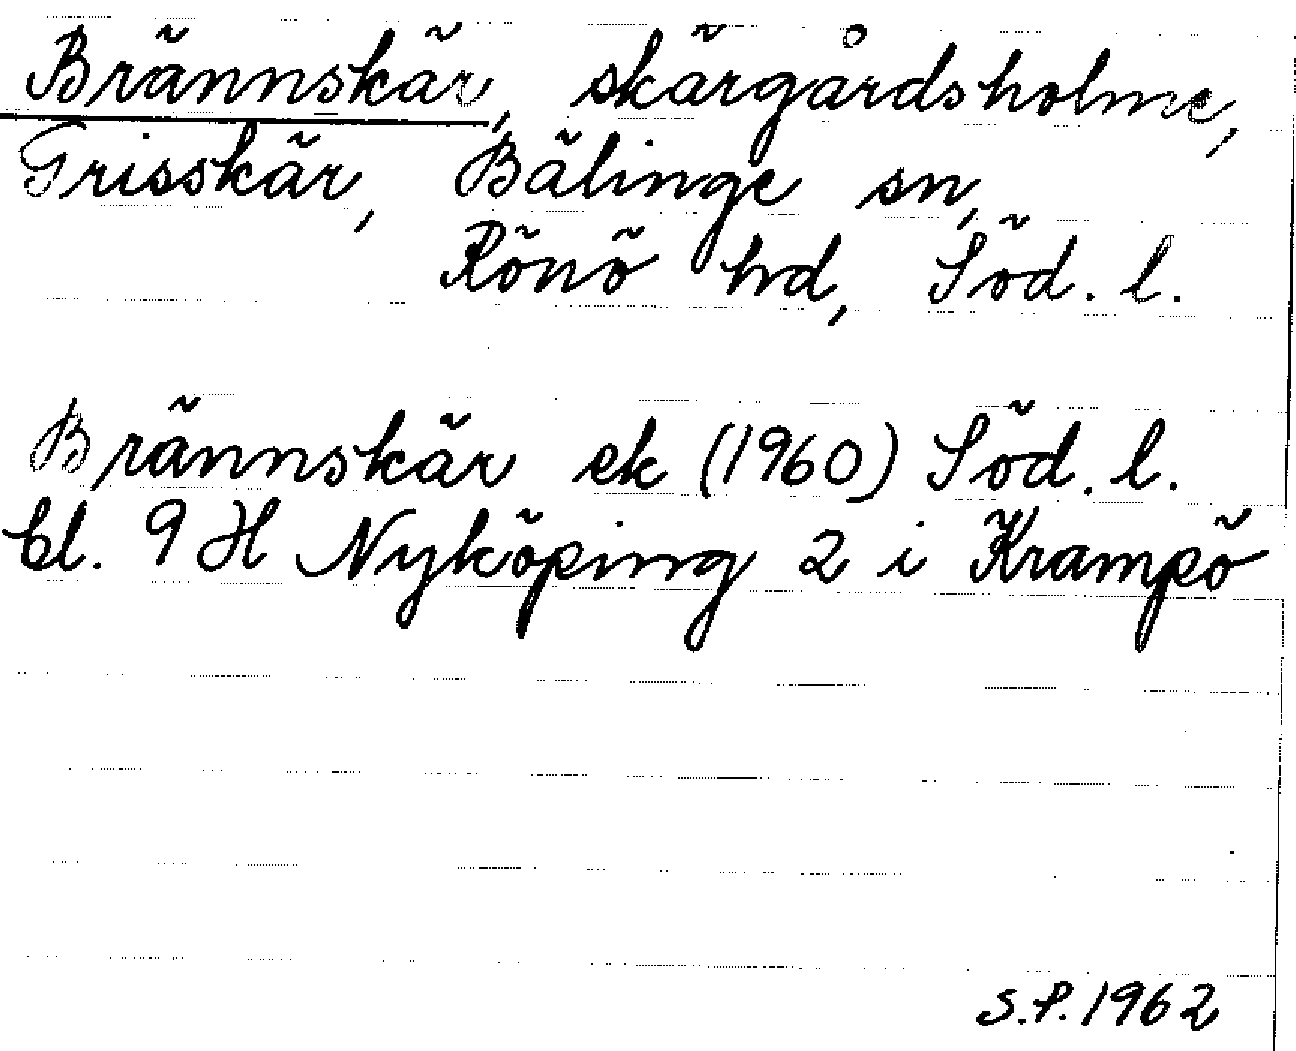 Brännskär, skärgårdsholme,
Grisskär, Bälinge sn,
Rönö hd, Söd. l.
Brännskär ek (1960) Söd. l.
bl. 9 H Nyköping 2 i Krampö
S.P. 1962